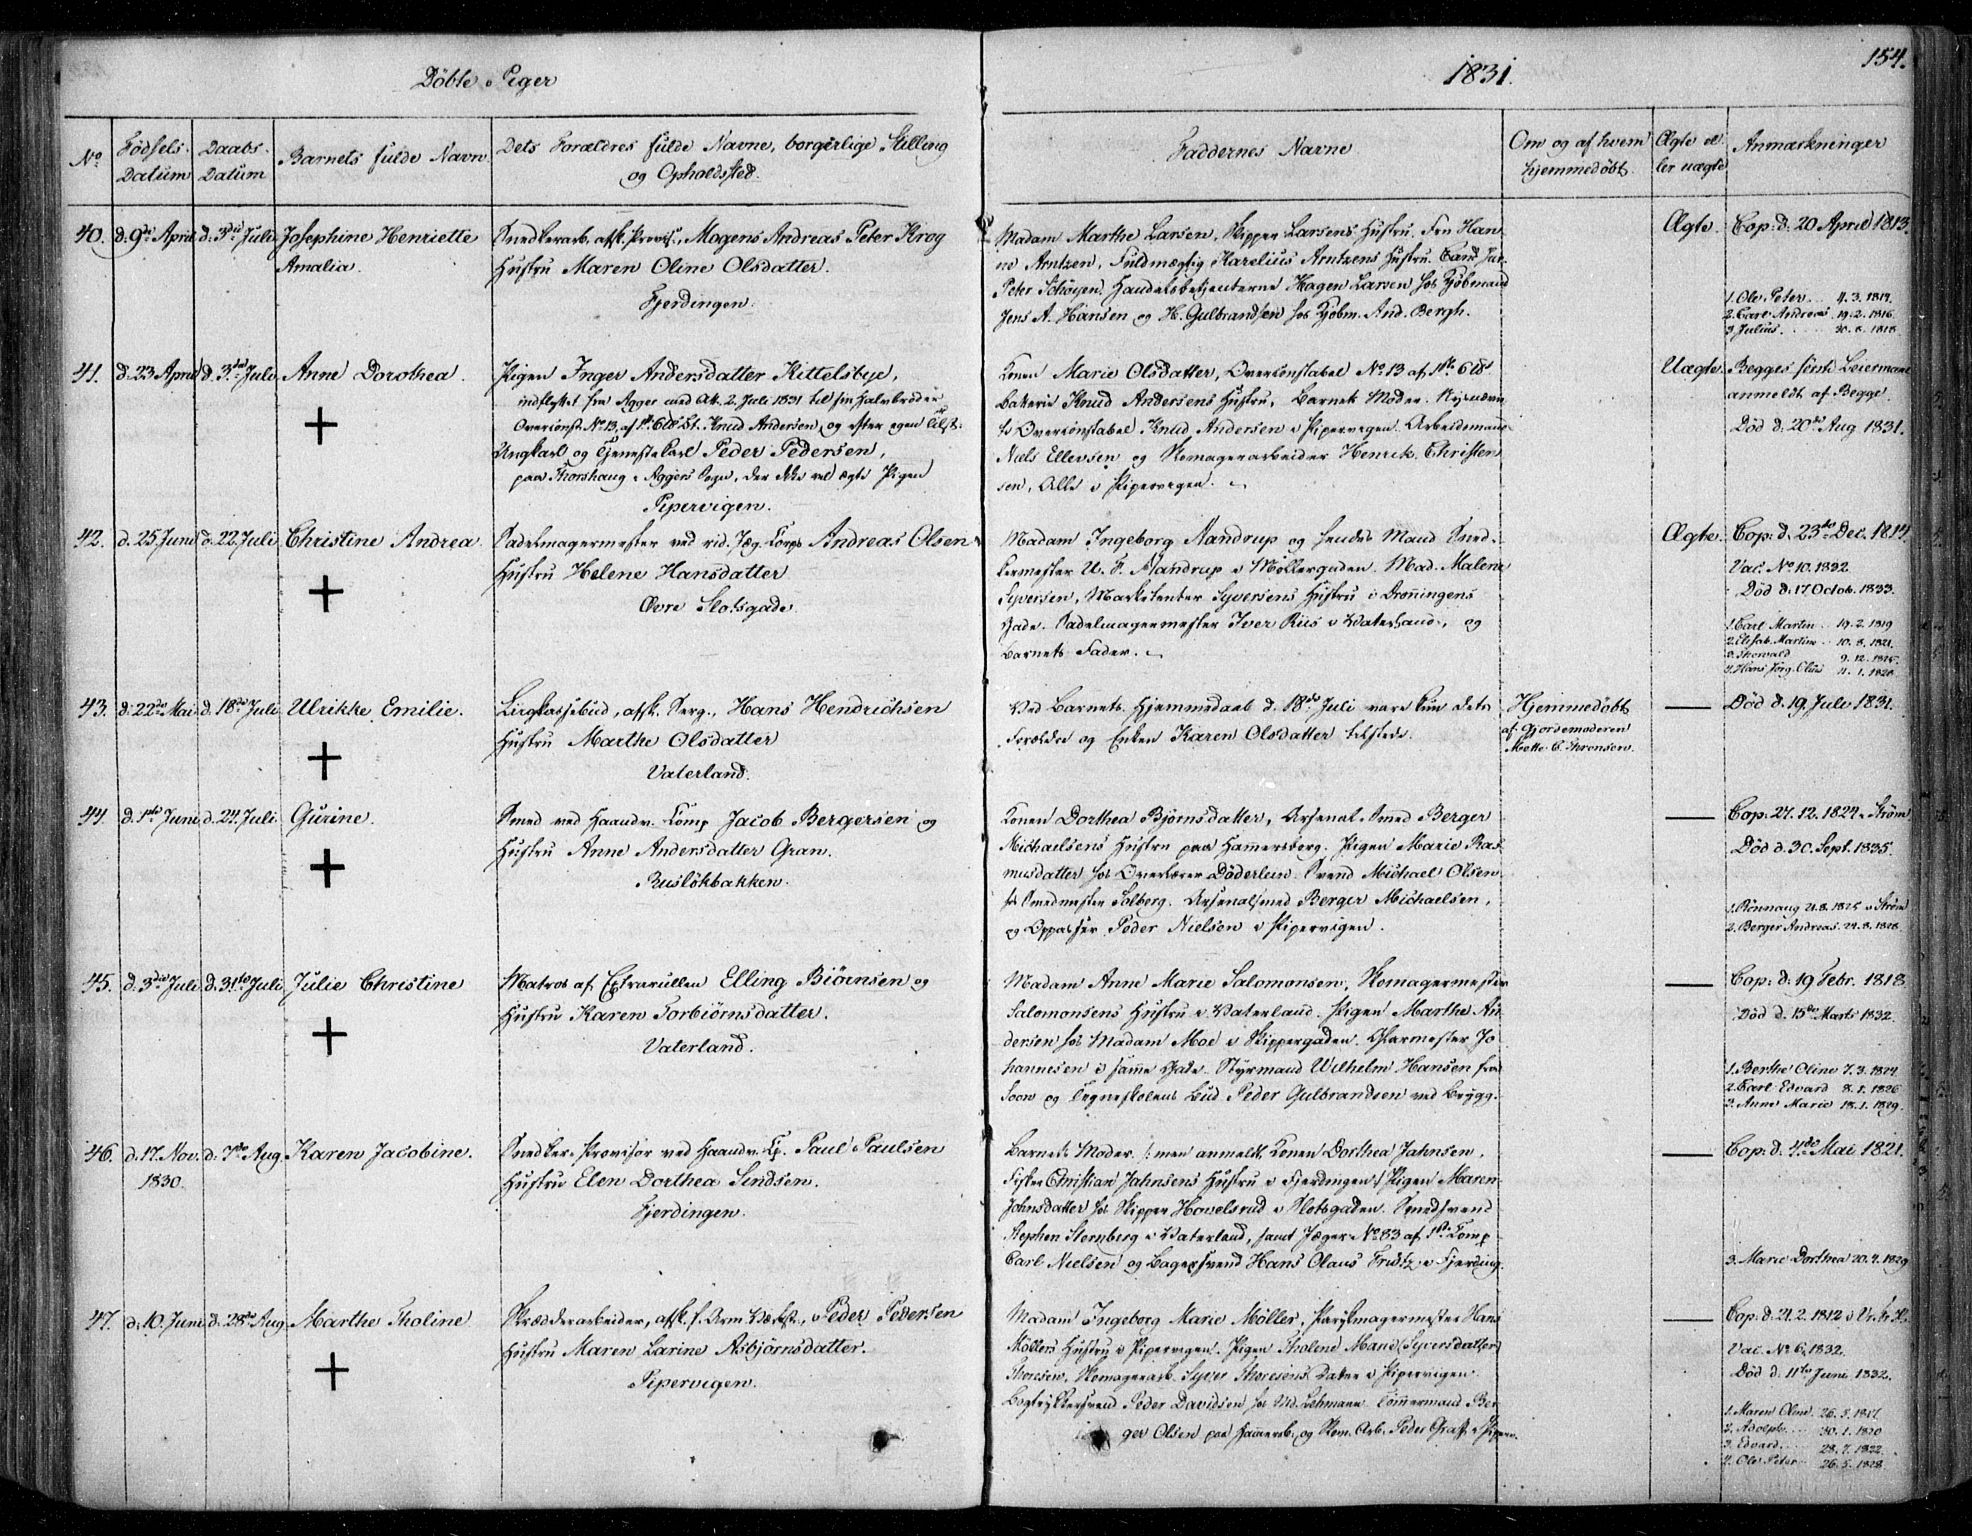 Døbte Piger
1831.
154.
No
Fødsels-
Datum
Daabs-
Datum
Barnets fulde Navn
Dets Forældres fulde Navne, borgerlige Stilling
og Opholdssted.
Faddernes Navne
Om og af hvem
hjemmedøbt.
Ægte el-
ler uægte
Anmærkninger
40. d. 9de April d. 3die Juli Josephine Henriette
Amalia.
Snedkerarb. afsk. Provis., Mogens Andreas Peter Krog
Hustru Maren Oline Olsdatter.
Fjerdingen.
Madam Marthe Larsen, Skipper Larsens Hustru. Fru Han-
ne Arntzen, Fuldmægtig Karelius Arntzens Hustru. Cand. Jur.
Peter Schøyen. Handelsbetjenterne Hagen Larsen hos Kjøbmand
Jens A. Hansen og H. Gulbrandsen hos Kjøbm. And. Bergh.
Ægte. Cop: d. 20 April 1813.
1. Ole Peter 4.3.1814.
2. Carl Andreas 19.2.1816
3. Julius 30.8.1818
41. d. 23 April d. 3die Juli Anne Dorothea.
Pigen Inger Andersdatter Kittelsbye,
indflyttet fra Agger med Att. 2. Juli 1831 til sin Halvbroder
Overconst. No 13 af 1ste 6 [...] Bt. Knud Andersen, og efter egen Tilst.
Ungkarl og Tjenestekarl Peder Pedersen,
paa Thorshaug i Aggers Sogn, der ikke vil ægte Pigen
Pipervigen.
Konen Marie Olsdatter, Overconstabel No 13 af 1ste 6 [...]
Batterie Knud Andersens Hustru, Barnets Moder.
Overconstabel Knud Andersen i Pipervigen. Arbeidsmand
Niels Ellevsen og Skomagerarbeider Henrik Christen-
sen, Alle i Pipervigen.
Uægte. Begges første Leiermaal
anmeldt af Begge
Død d. 20de Aug 1831.
42. d. 25 Juni d. 22 Juli Christine Andrea
Sadelmagermester ved rid. Jæg. Corps Andreas Olsen
Hustru Helene Hansdatter
Øvre Slotsgade.
Madam Ingeborg Nandrup og hendes Mand Sned-
kermester U. F. Nandrup i Møllergaden. Mad. Malene
Syversen, Marketenter Syversens Hustru i Dronningens
Gade. Sadelmagermester Iver Riis i Vaterland, og
Barnets Fader.
Ægte. Cop: d. 23de Dec. 1814
Vac. No 10. 1832.
Død d: 17 Octob. 1833.
1. Carl Martin 19.2.1819
2. Elisab. Martine 10.8.1821.
3. Thorvald 9.12.1825.
4. Hans Jørg. Olus 4.1.1828
43. d. 22de Mai d. 18de Juli Ulrikke Emilie.
Liigkassebud, afsk. Serg., Hans Hendrichsen
Hustru Marthe Olsdatter
Vaterland.
Ved Barnets Hjemmedaab d. 18de Juli vare kun dets
Forældre og Enken Karen Olsdatter tilstede.
Hjemmedøbt
af Gjordemoderen
Mette C. Thronsen.
Død d. 19 Juli 1831.
44. d. 1ste Juni d. 24. Juli Gurine.
Smed ved Haandv. Comp. Jacob Bergersen og
Hustru Anne Andersdatter Gran.
Rusløkbakken.
Konen Dorthea Bjørnsdatter, Arsenal-Smed Berger
Michaelsens Hustru paa Hammersborg. Pigen Marie Ras-
musdatter hos Overlærer Døderlein. Svend Michael Olsen
hos Smedmester Solberg. Arsenalsmed Berger Michaelsen,
og Oppasser Peder Nielsen i Pipervigen.
Cop: 27.12.1824 i Strøm
Død d. 30. Sept. 1835.
1. Rønnaug 21.8.1825 i Strøm
2. Berger Andreas. 24.8.1828
45. d. 3die Juli d. 31te Juli Julie Christine
Matros af Extrarullen Elling Biørnsen og
Hustru Karen Torbiørnsdatter.
Vaterland.
Madam Anne Marie Salomonsen, Skomagermester
Salomonsens Hustru i Vaterland. Pigen Marthe An-
dersen hos Madam Moe i Skippergaden. Glarmester Jo-
hannesen i samme Gade. Styrmand Wilhelm Hansen fra
Soon og Tegneskolens Bud Peder Gulbrandsen ved Brygg.
Cop: d: 19 Febr. 1818.
Død d. 15de Marts 1832.
1. Berthe Oline 7.3.1824.
2. Carl Edvard 8.1.1826
3. Anne Marie 18.1.1829.
46. d. 17. Nov. 1830 d. 7de Aug. Karen Jacobine.
Snedker-Provisor ved Haandv. Cp. Paul Paulsen
Hustru Elen Dorthea Sindsen.
Fjerdingen.
Barnets Moder (: men anmeldt Konen Dorthea Jahnsen,
Fisker Christian Jahnsens Hustru i Fjerdingen :) Pigen Maren
Johnsdatter hos Skipper Howelsrud i Slotsgaden. Smedsvend
Stephen Stornberg i Vaterland, samt Jæger No 83 af 1ste Comp.
Carl Nielsen og Bagersvend Hans Olaus Frøitz i Fjerding.
Cop: d. 4de Mai 1821.
3. Marie Dorthea 20.4.1829
47. d. 10. Juni d. 28de Aug. Marthe Tholine
Skrædderarbeider, afsk. f. Arm. Værkst., Peder Pedersen
Hustru Maren Larine Asbjørnsdatter.
Pipervigen.
Madam Ingeborg Marie Møller, Parykmagermester Hans
Møllers Hustru i Pipervigen. Pigen Tholene Marie Syversdatter
Thoresen, Skomagerarb. Syver Thoresens Datter i Pipervigen.
Bogtrykkersvend Peder Davidsen hos Lehmann. Tømmermand Ber-
ger Olsen paa Hammersb. og Skom. Arb. Peder Graff i Piperv.
Cop. d. 21.2.1812 i Vr. Fr. K.
Vac. No 6. 1832.
Død d. 11te Juni 1832.
1. Maren Oline 26.5.1817.
2. Adolph 30.1.1820
3. Edvard 28.7.1822
4. Ole Peter 26.5.1828.